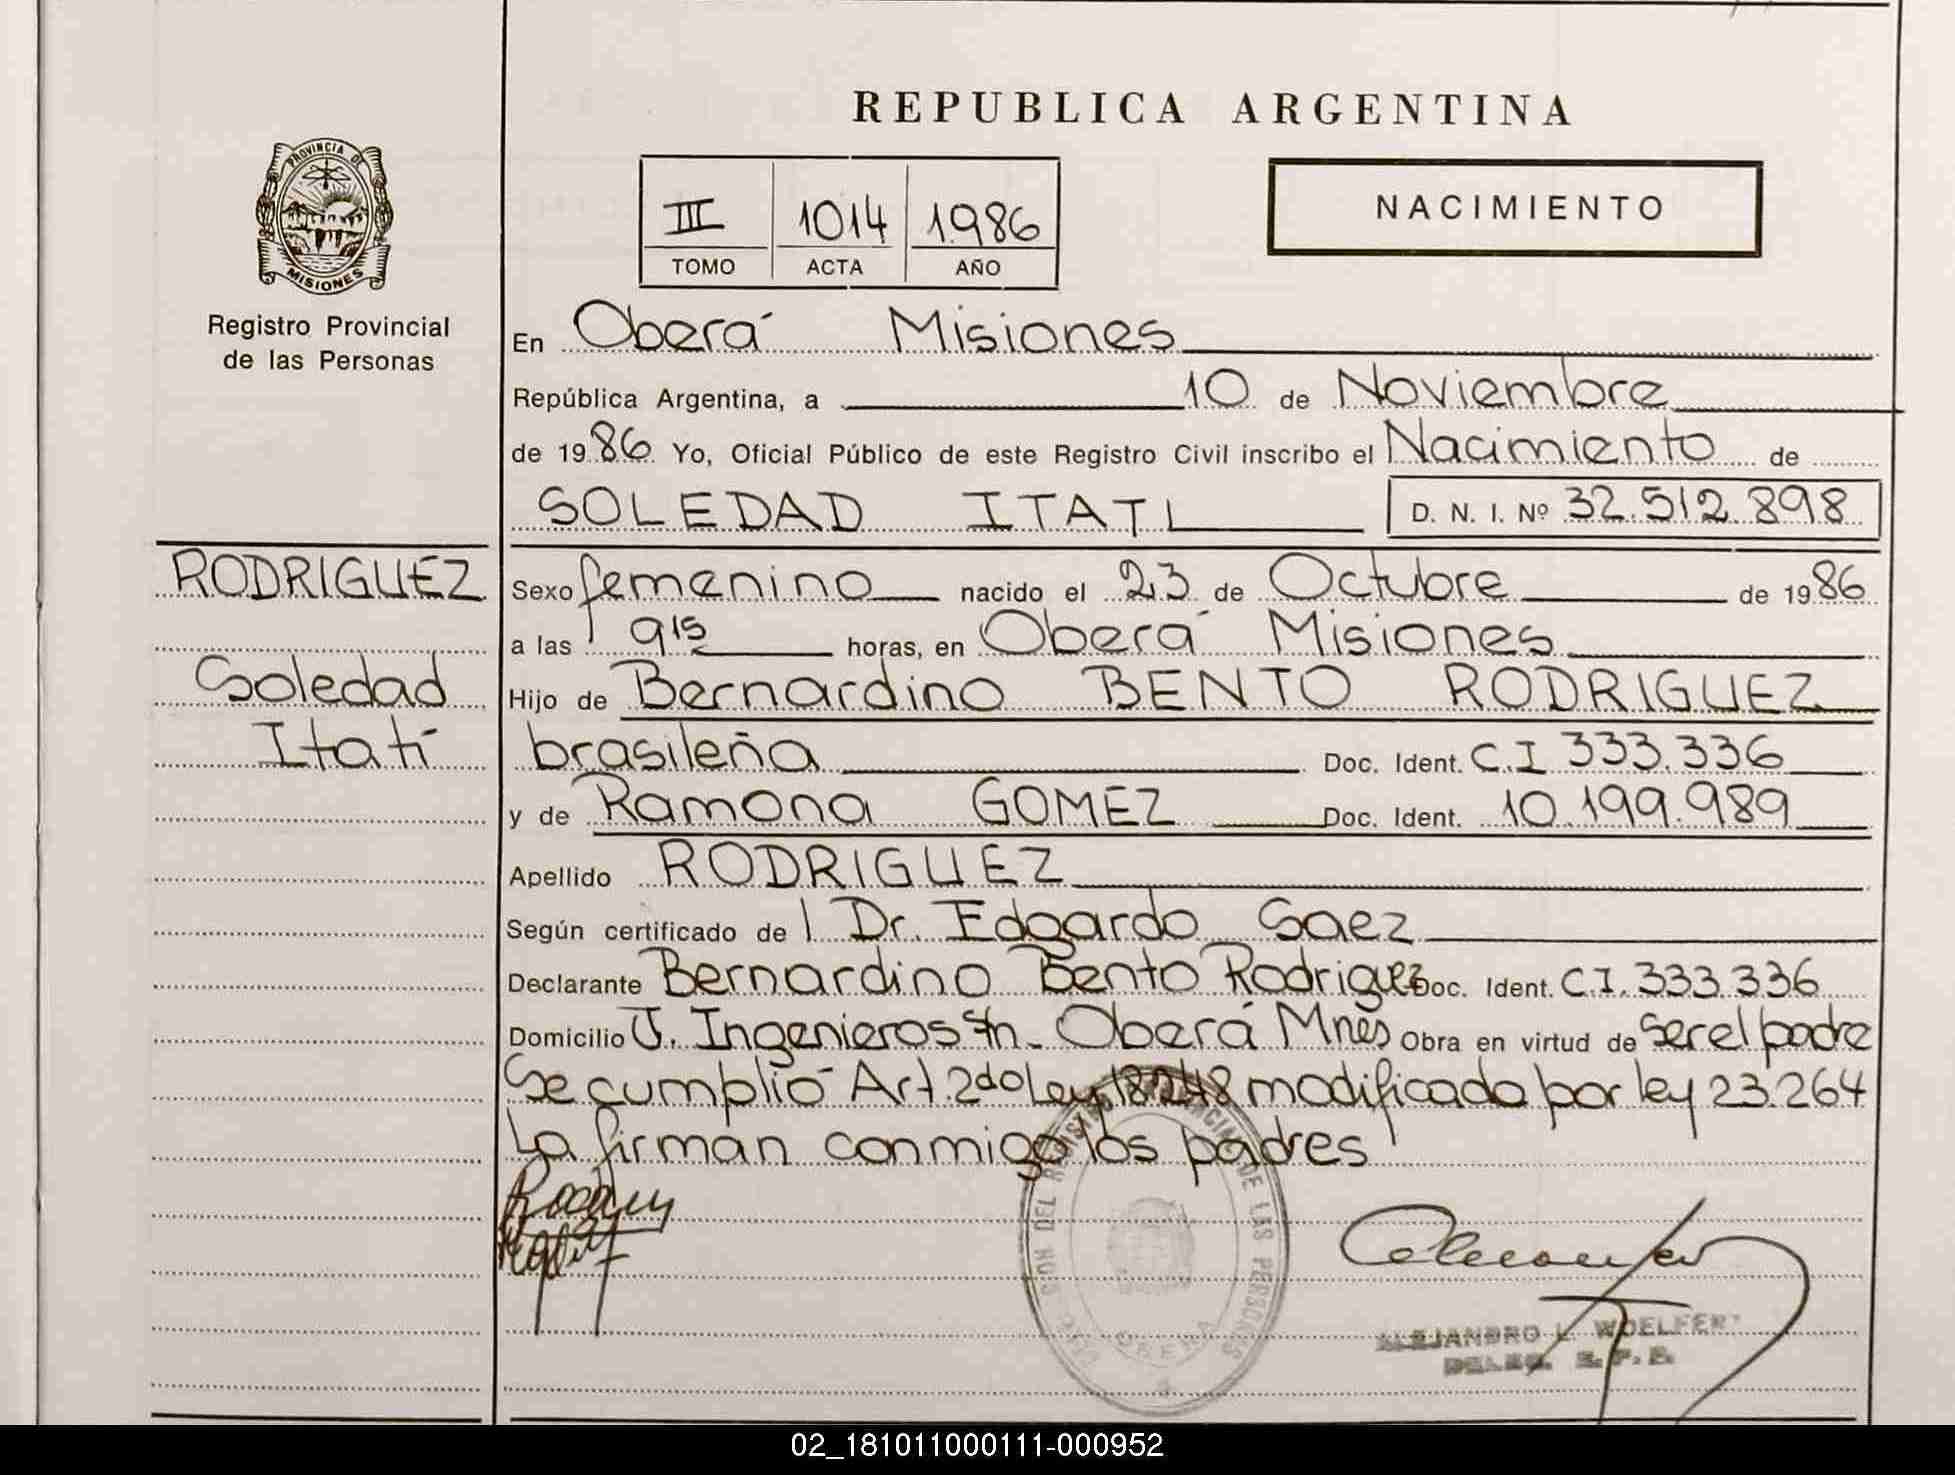 REPUBLICA ARGENTINA
PROVINCIA DE
MISIONES
Registro Provincial
de las Personas
III 1014 1986
TOMO ACTA AÑO
NACIMIENTO
En Oberá Misiones
República Argentina, a 10 de Noviembre
de 1986 Yo, Oficial Público de este Registro Civil inscribo el Nacimiento de
SOLEDAD ITATI D. N. I. Nº 32.512.898
RODRIGUEZ
Soledad
Itatí
Sexo femenino nacido el 23 de Octubre de 1986
a las 9 15 horas, en Oberá Misiones
Hijo de Bernardino BENTO RODRIGUEZ
brasileña Doc. Ident. C.I 333.336
y de Ramona GOMEZ Doc. Ident. 10.199.989
Apellido RODRIGUEZ
Según certificado de l Dr. Edgardo Saez
Declarante Bernardino Bento Rodriguez Doc. Ident. C.I. 333.336
Domicilio J. Ingenieros s/n - Oberá Mnes Obra en virtud de ser el padre
Se cumplió Art. 2do Ley 18248 modificado por ley 23.264
La firman conmigo los padres
DEL REGISTRO PROVINCIAL DE LAS PERSONAS
OBERA
ALEJANDRO L. WOELFERT
02_181011000111-000952